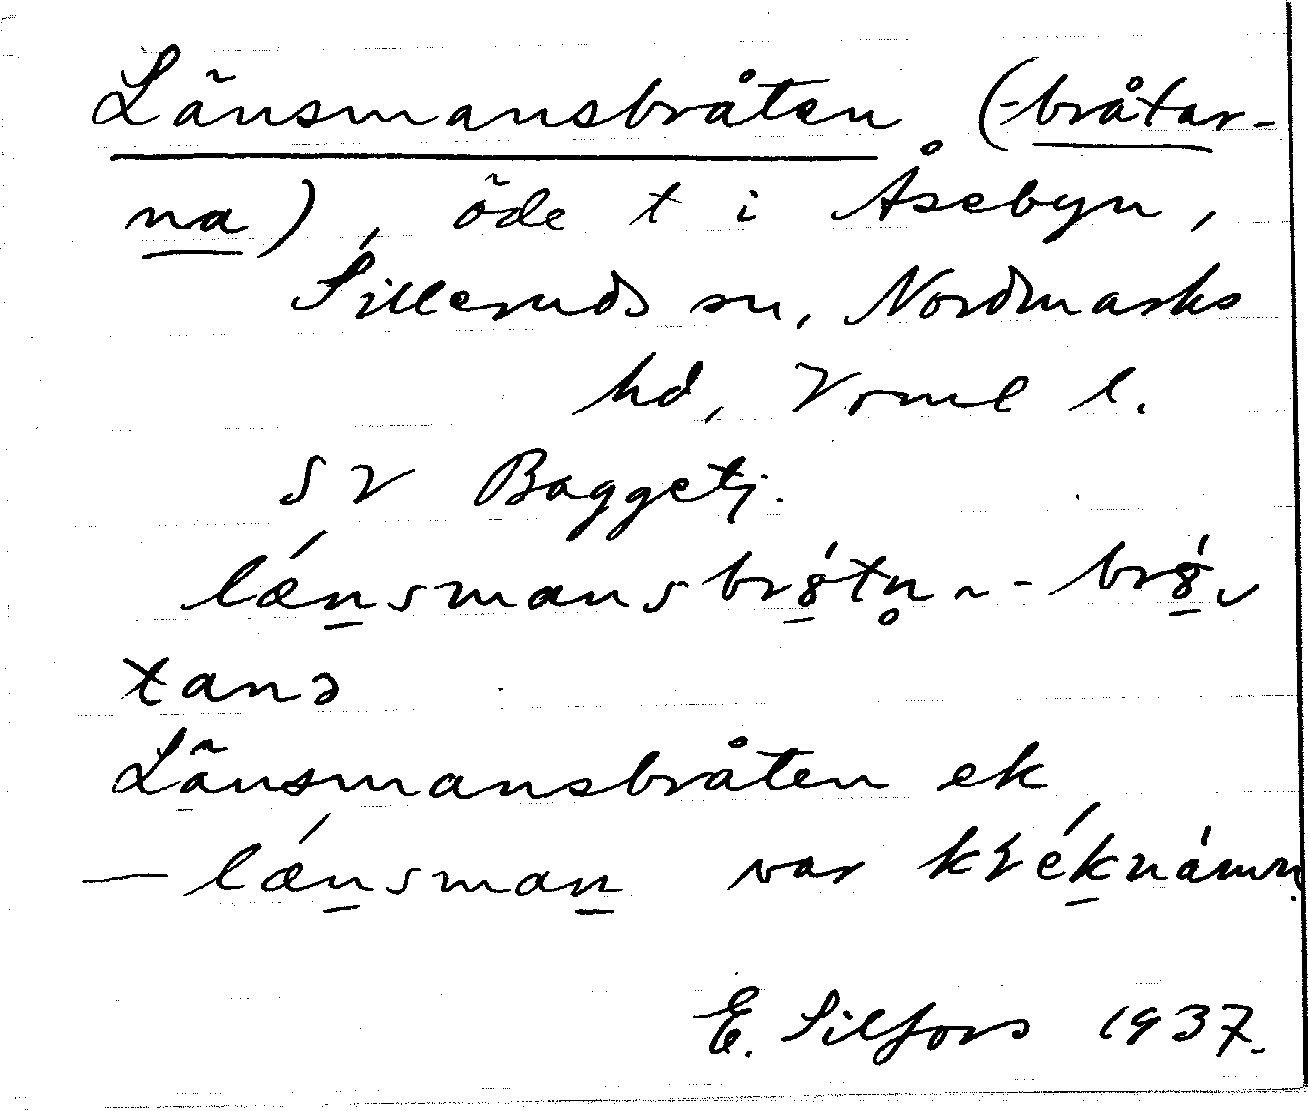 Länsmansbråten (-bråtar-
na), öde t i Åsebyn,
Silleruds sn, Nordmarks
hd, Vrml l.
SV Baggetj.
lǽn̲smansbrȣ̲́tn̥ ~ -brȣ̲́-
tanə
Länsmansbråten ek
— lǽn̲sman̲ var
E. Silfors 1937.